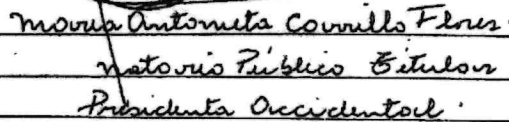 Maria Antonieta Carrillo Flores.
Notario Público Titular
Presidenta Occidental.